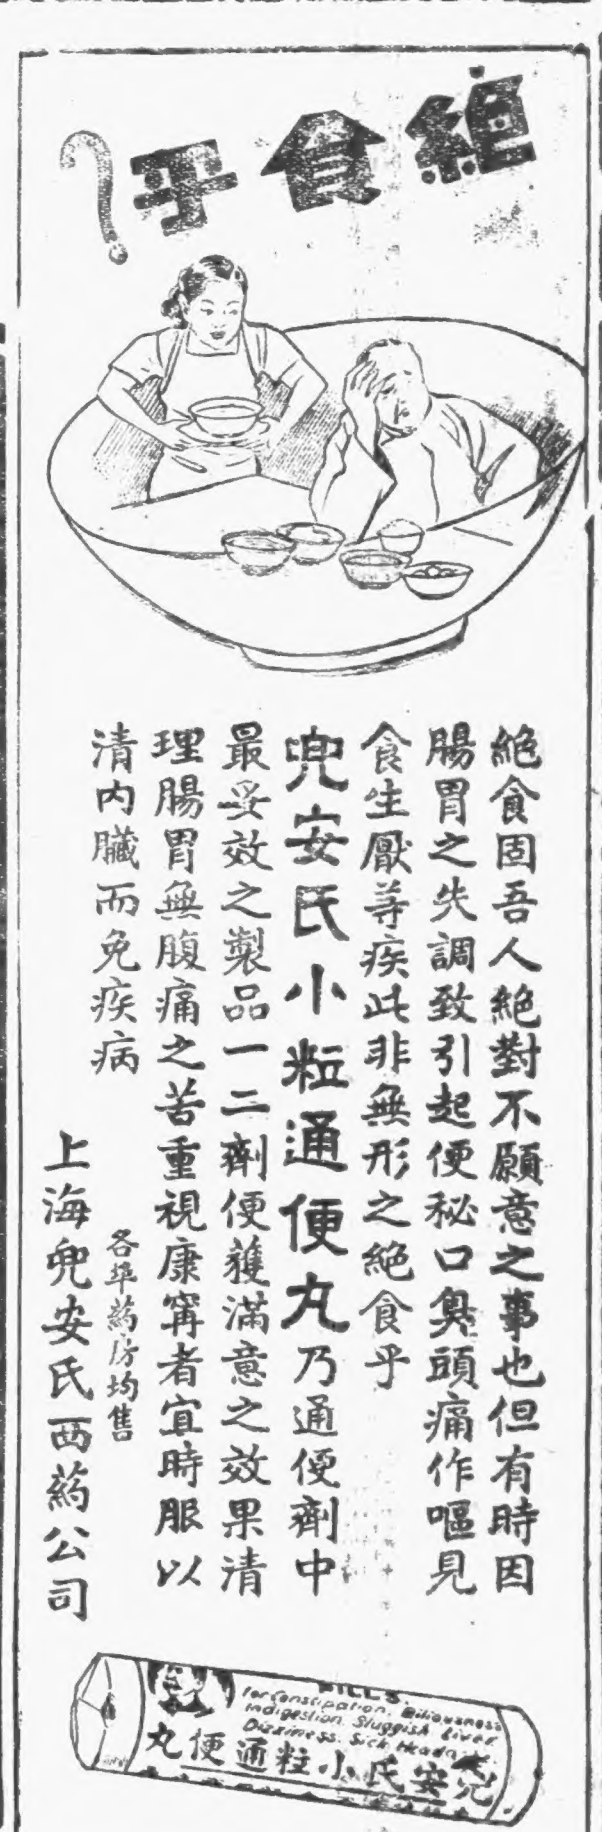 絕食乎？
絕食固吾人絕對不願意之事也但有時因
腸胃之失調致引起便秘口臭頭痛作嘔見
食生厭等疾此非無形之絕食乎
兜安氏小粒通便丸乃通便劑中
最妥效之製品一二劑便獲滿意之效果清
理腸胃無腹痛之苦重視康甯者宜時服以
清內臟而免疾病
各埠藥房均售
上海兜安氏西藥公司
PILLS.
for Constipation, Biliousness
Indigestion, Sluggish Liver
Dizziness, Sick Heada
兜安氏小粒通便丸